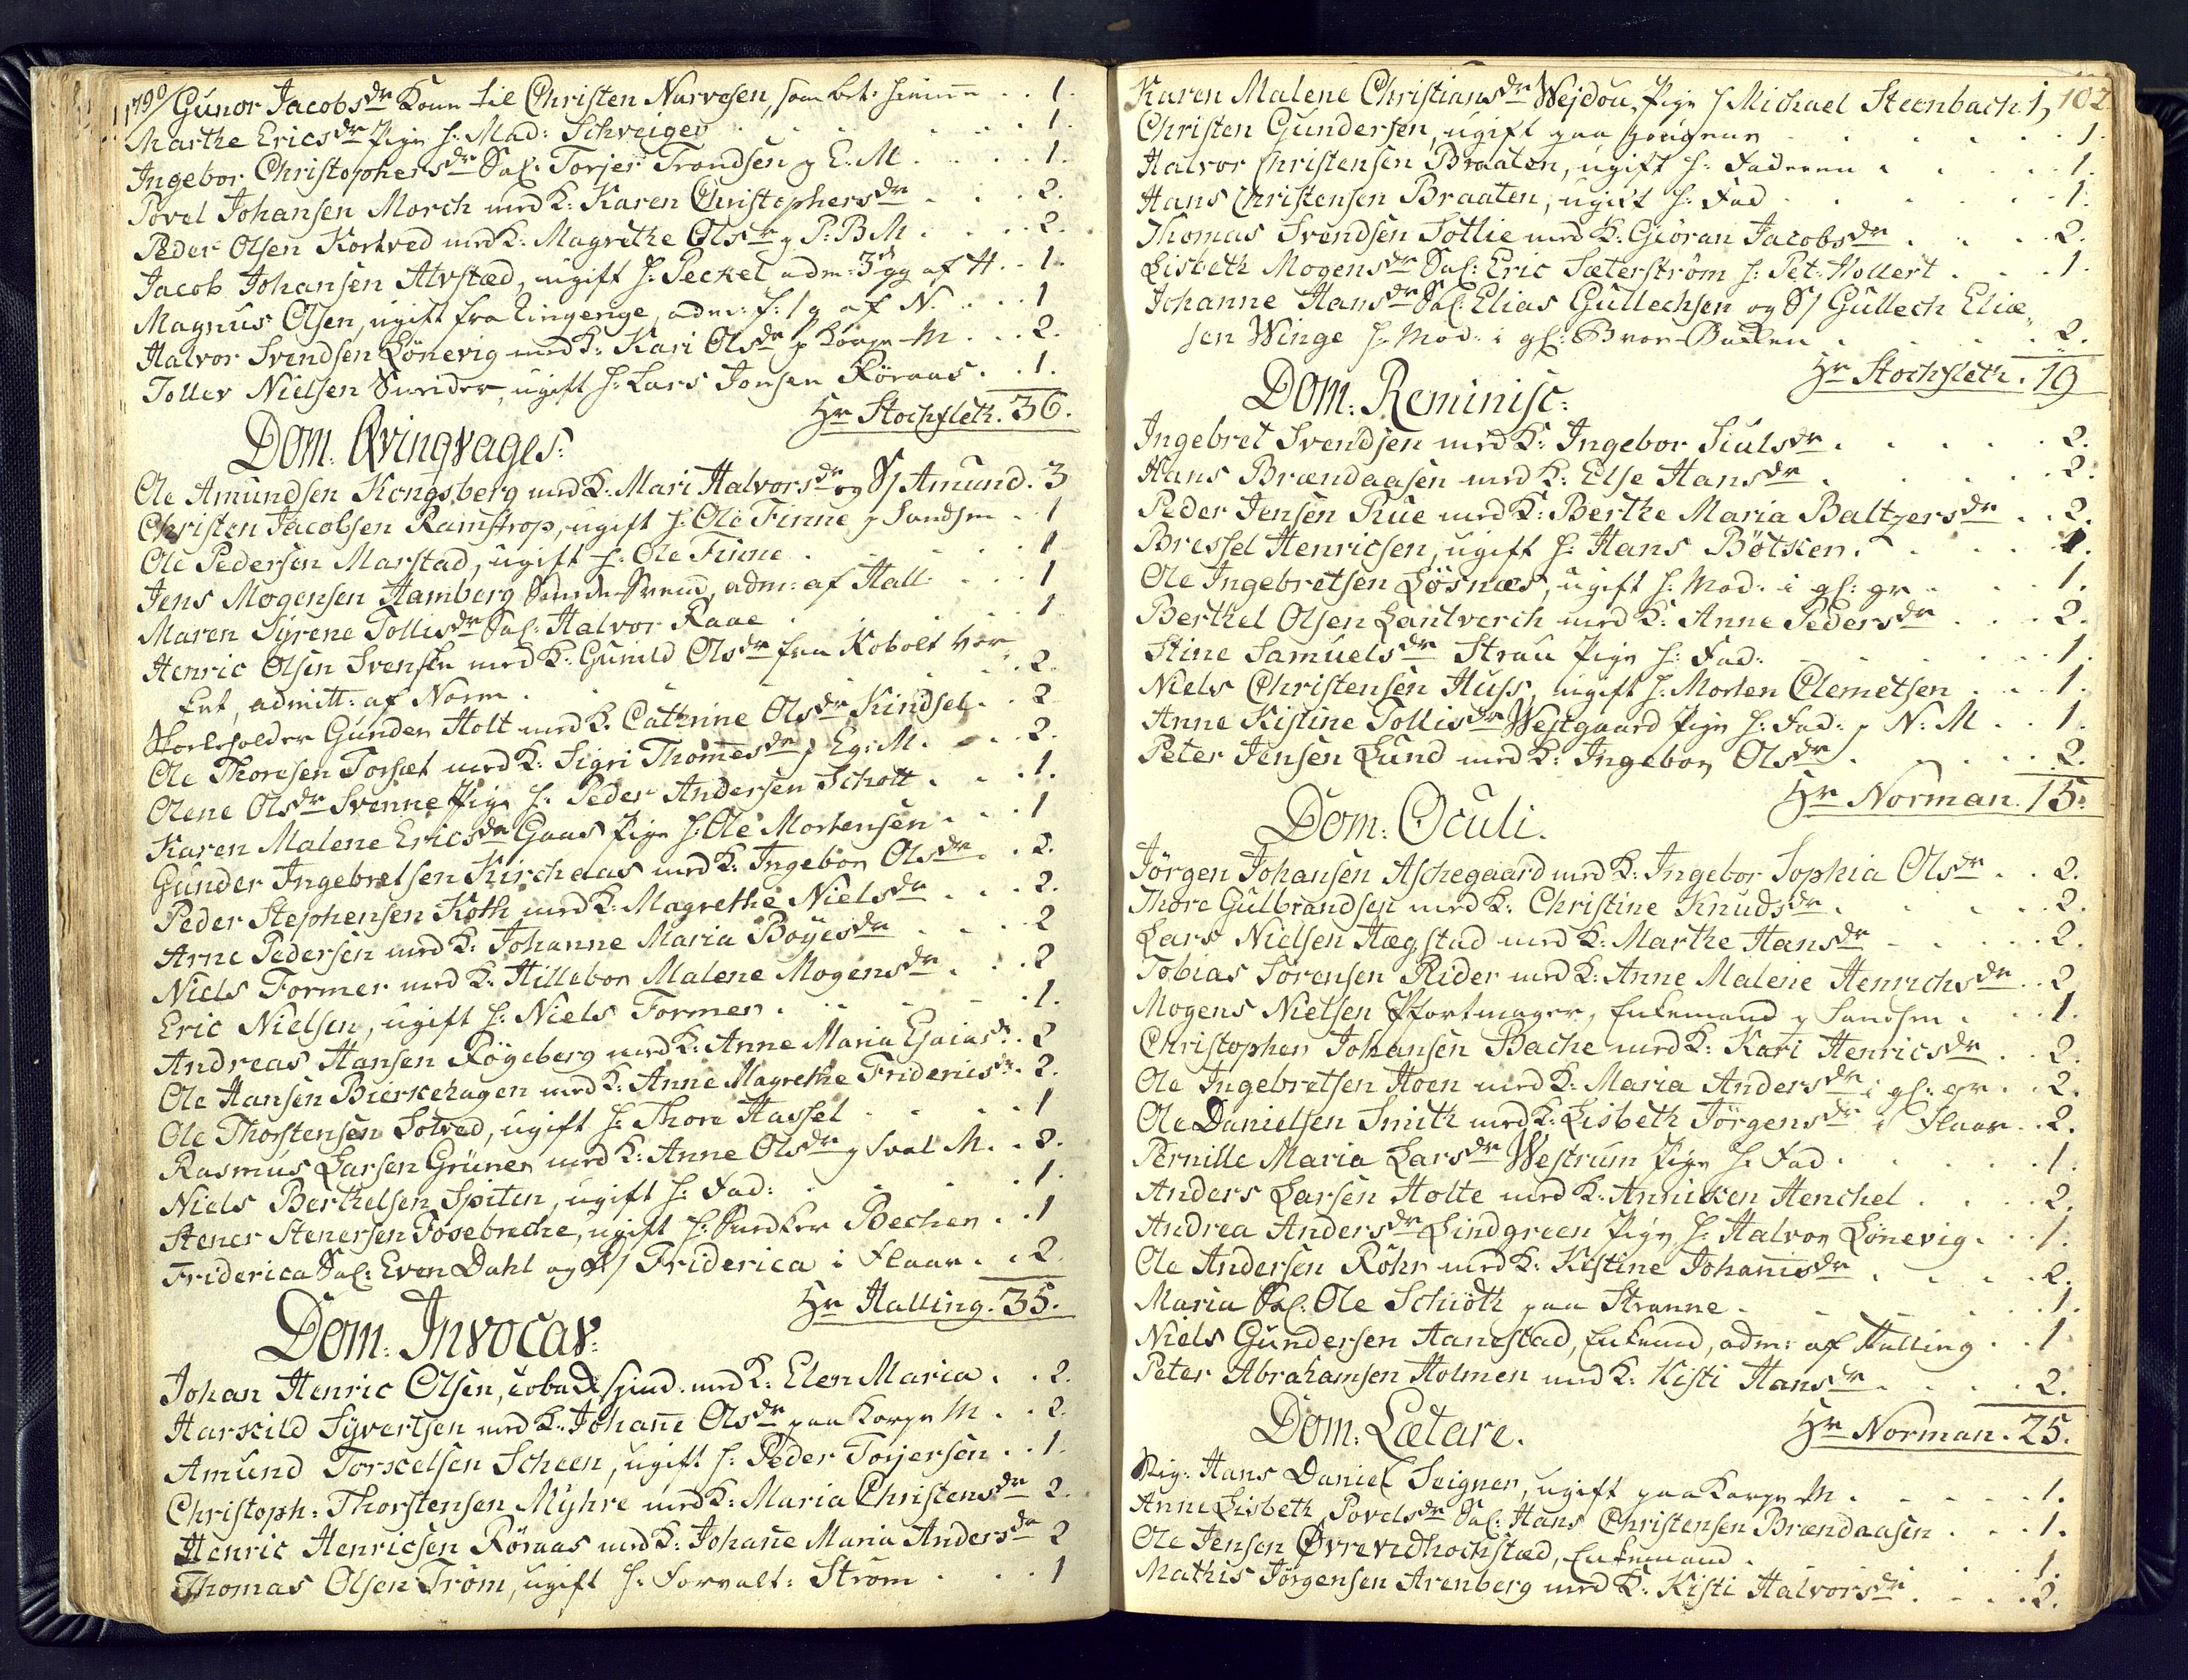 1790/ Gunor Jacobsdr Kone til Christen Narvesen, som bet: hiemme . . 1.
Marthe Ericsdr Pige h: Mad: Schveiger . . . 1.
Ingebor Christophersdr Sal: Torjer Trondsen p E: M . . . 1.
Povel Johansen Morch med K: Karen Christophersdr . . . 2.
Peder Olsen Kortved med K: Magrethe Olsdr p P: B M . . . 2.
Jacob Johansen Alvstæd, ugift h: Peckel adm: 3d gg af H . . 1.
Magnus Olsen, ugift fra Eingerige, adm: f: 1 g af N. . . . 1
Halvor Svendsen Lønevig med K: Kari Olsdr p Kong M . . . 2.
Tollev Nielsen Snider, ugift h: Lars Jonsen Röraas . . 1.
Hr Stochfleth. 36.
Dom. Qvinqvages:
Ole Amundsen Kongsberg med K: Mari Halvorsdr og S/ Amund . 3
Christen Jacobsen Ramstrop, ugift h: Ole Finne p Sandsen . . 1
Ole Pedersen Marstad, ugift h: Ole Finne . . . 1
Jens Mogensen Hamberg Svend, adm: af Hall: . . . 1
Maren Syrene Tollisdr Sal: Halvor Raae . . . 1
Henric Olsen Svenske med K: Gunild Olsdr fra Kobolt Ver
ket, admitt: af Norm . . . 2.
Gunder Holt med K: Cathrine Olsdr Kindsel . . 2
Ole Thoresen Torsæt med K: Sigri Thommesdr p Eg: M . . . 2.
Olene Olsdr Svenne Pige h: Peder Andersen Schott . . . 1.
Karen Malene Ericsdr Gaas Pige h: Ole Mortensen . . . 1
Gunder Ingebretsen Kirchaas med K: Ingebor Olsdr . . 2.
Peder Stephensen Koth med K: Magrethe Nielsdr . . . 2.
Arne Pedersen med K: Johanne Maria Böyesdr . . . 2
Niels Former med K: Hillebor Malene Mogensdr . . . 2
Eric Nielsen, ugift h: Niels Former . . . 1.
Andreas Hansen Rögeberg med K: Anne Maria Esaiasdr . 2
Ole Hansen Bierkehagen med K: Anne Magrethe Fridericsdr . 2.
Ole Thorstensen Solved, ugift h: Thore Hassel . . . 1
Rasmus Larsen Grüner med K: Anne Olsdr p Sval M . . 2.
Niels Berthelsen Spiten, ugift h: Fad: . . . 1.
Stener Stenersen Fosebreche, ugift h: Snedker Bechen . . 1
Friderica Sal: Even Dahl og D/ Friderica i Flaar . . 2
Hr Halling. 35.
Dom. Invocav:
Johan Henric Olsen, med K: Elen Maria . . 2.
Harskild Syvertsen med K: Johane Olsdr paa Kong M . . 2.
Amund Torkelsen Scheen, ugift h: Peder Torjersen . . 1.
Christoph: Thorstensen Myhre med K: Maria Christensdr 2.
Henric Henricsen Röraas med K: Johane Maria Andersdr 2
Thomas Olsen Trøm, ugift h: Forvalt: Strøm . . . 1
102
Karen Malene Christiansdr Wejdou, Pige h Michael Steenbach. 1,
Christen Gundersen, ugift paa . . . 1.
Halvor Christensen Braaten, ugift h: Faderen . . . 1.
Hans Christensen Braaten, ugift h: Fad . . . 1.
Thomas Svendsen Sottie med K: Giöran Jacobsdr . . . 2.
Lisbeth Mogensdr Sal: Eric Sæterström h: Pet: Hollert . . . 1.
Johanne Hansdr Sal: Elias Gullechsen og S/ Gullech Eliæ
sen Winge h: Mod: i gl: Broe-Backen . . . 2.
Hr Stochfleth. 19
Dom: Reminisc:
Ingebret Svendsen med K: Ingebor Siulsdr . . . 2.
Hans Brændaasen med K: Else Hansdr . . . 2.
Peder Jensen Rue med K: Berthe Maria Baltzersdr . . 2.
Bressel Henricsen, ugift h: Hans Bötker . . . 1.
Ole Ingebretsen Løsnæs, ugift h: Mod: i gl: gr . . . 1.
Berthel Olsen Lantverch med K: Anne Pedersdr . . . 2.
Stine Samuelsdr Strau Pige h: Fad: . . . 1.
Niels Christensen Huss, ugift h: Morten Clemetsen . . . 1.
Anne Kistine Tollisdr Westgaard Pige h: Fad: p N: M . . 1.
Peter Jensen Lund med K: Ingebor Olsdr . . . 2.
Hr Norman. 15.
Dom: Oculi.
Jörgen Johansen Aschegaard med K: Ingebor Sophia Olsdr . . 2.
Thore Gulbrandsen med K: Christine Knudsdr . . . 2.
Lars Nielsen Hægstad med K: Marthe Hansdr . . . 2.
Tobias Sörensen Rider med K: Anne Malene Henrichsdr . . 2
Mogens Nielsen Pfortmager, Enkemand p Sandsen . . . 1.
Christopher Johansen Bache med K: Kari Henricsdr . . 2.
Ole Ingebretsen Hoen med K: Maria Andersdr i gl: gr . . 2.
Ole Danielsen Smith med K: Lisbeth Jörgensdr i Flaar . . 2.
Pernille Maria Larsdr Westrum Pige h: Fad . . . 1.
Anders Larsen Holte med K: Anniken Henchel . . . 2.
Andrea Andersdr Lindgreen Pige h: Halvor Lönevig . . . 1.
Ole Andersen Röhr med K: Kistine Johanisdr . . . 2.
Maria Sal: Ole Schiöth paa Stranne . . . 1.
Niels Gundersen Hanestad, Enkemd, adm: af Halling . . 1
Peter Abrahamsen Holmen med K: Kisti Hansdr . . . 2.
Hr Norman. 25.
Dom: Lætare.
Sig: Hans Daniel Seigner, ugift paa Kong M . . . 1.
Anne Lisbeth Povelsdr Sal: Hans Christensen Brændaasen . . . 1.
Ole Jensen Øvrevedhochstæd, Enkemand . . . 1.
Mathis Jörgensen Arenberg med K: Kisti Halvorsdr . . . 2.